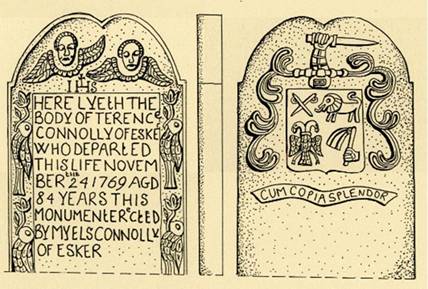 IHS
HERE LYETH THE
BODY OF TERENCE
CONNOLLY OF ESKE
WHO DEPARTED
THIS LIFE NOVEM
BER the 24 1769 AGD
84 YEARS THIS
MONUMENT ERECTED
BY MYELS CONNOLLY
OF ESKER
CUM COPIA SPLENDOR